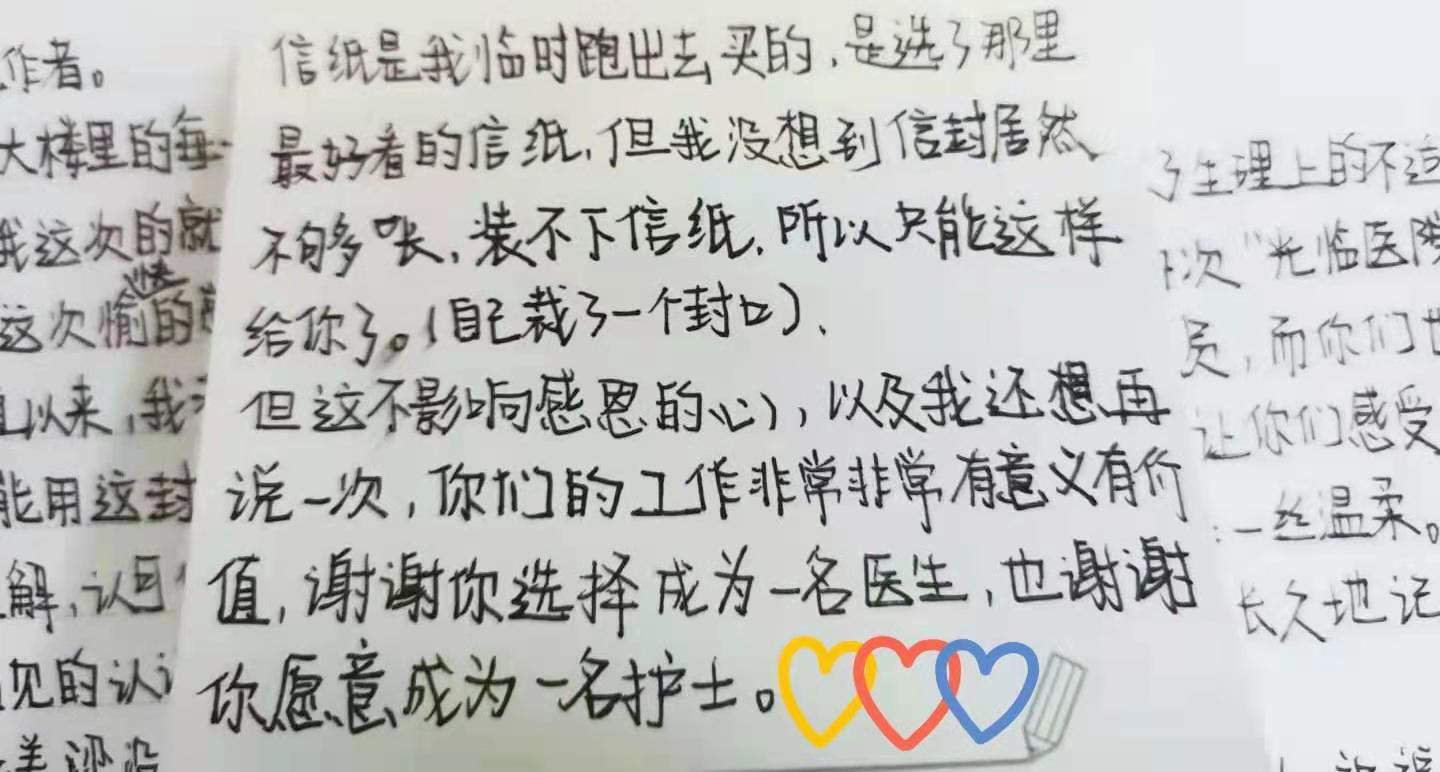 作者。
大楼里的每
我这次的就
这次愉快的
以来,我
能用这封
解,认可
见的认
信纸是我临时跑出去买的,是选了那里
最好看的信纸,但我没想到信封居然
不够长,装不下信纸,所以只能这样
给你了。(自己裁了一个封口).
但这不影响感恩的心),以及我还想再
说一次,你们的工作非常非常有意义有价
值,谢谢你选择成为一名医生,也谢谢
你愿意成为一名护士。
了生理上的不适
次“光临医院
员,而你们也
让你们感受
一丝温柔。
长久地记